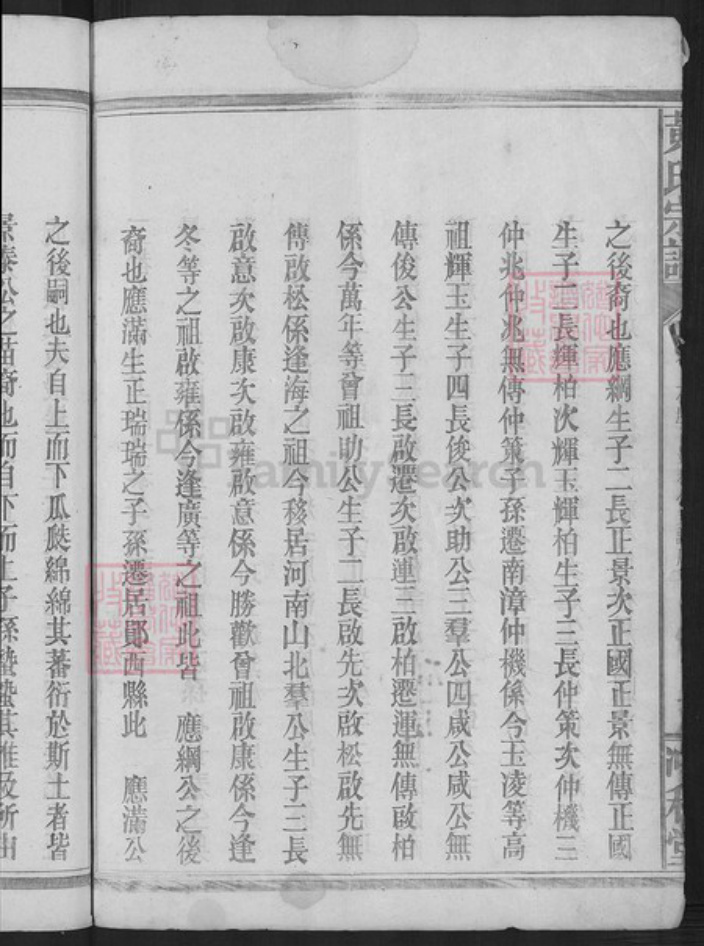 黃氏宗譜
之後裔也應綱生子二長正景次正國正景無傳正國
生子二長輝柏次輝玉輝柏生子三長仲策次仲機三
仲兆仲兆無傳仲策子孫遷南漳仲機係今玉凌等高
祖輝玉生子四長俊公次助公三羣公四咸公咸公無
傳俊公生子三長啟遷次啟連三啟柏遷連無傳啟柏
係今萬年等曾祖助公生子二長啟先次啟松啟先無
傳啟松係逢海之祖今移居河南山北羣公生子三長
啟意次啟康次啟雍啟意係今勝歡曾祖啟康係今逢
冬等之祖啟雍係今逢廣等之祖此皆 應綱公之後
裔也應滿生正瑞瑞之子孫遷居鄖西縣此 應滿公
之後嗣也夫自上而下瓜瓞綿綿其蕃衍於斯土者皆
景泰公之苗裔也而自下而上子孫蟄蟄其推及所由
FamilySearch